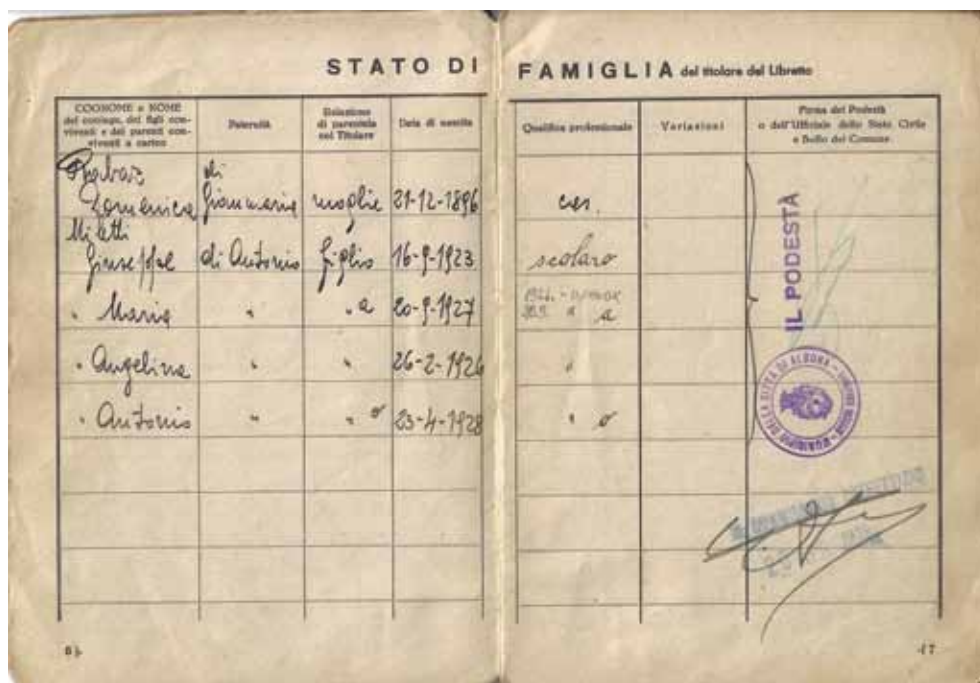 STATO DI FAMIGLIA del titolare del Libretto
COGNOME e NOME del coniuge, dei figli conviventi e dei parenti conviventi a carico
Paternità
Relazione di parentela col Titolare
Data di nascita
Qualifica professionale
Variazioni
Firma del Podestà o dell'Ufficiale dello Stato Civile e Bollo del Comune
di
Domenica Gianmaria moglie 21-12-1896 cas.
Miletti
Giuseppe di Antonio figlio 16-9-1923 scolaro
" Maria " " a 20-9-1927 " a
" Angelina " " 26-2-1926 "
" Antonio " " o 23-4-1928 " o
IL PODESTÀ
MUNICIPIO DELLA CITTÀ DI ALBONA
6
7